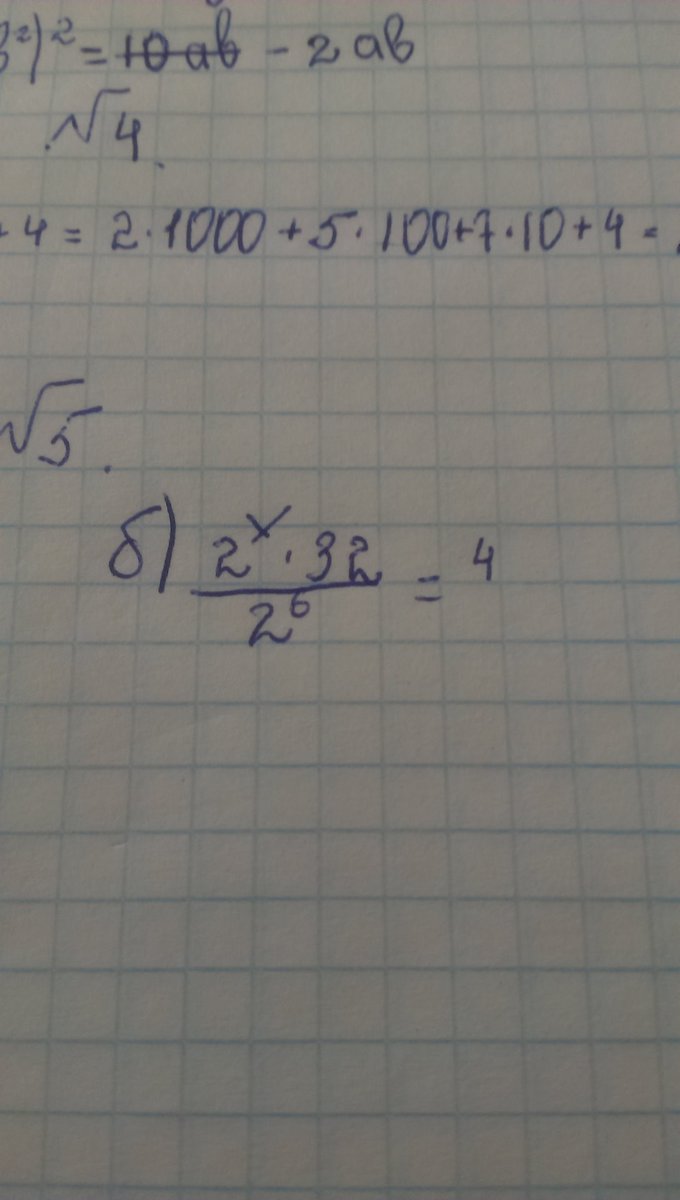 в²)² = 10 ав - 2 ав
√4.
+ 4 = 2·1000 + 5·100+7·10+4=
√5.
б) 2ˣ·32 / 2⁶ = 4